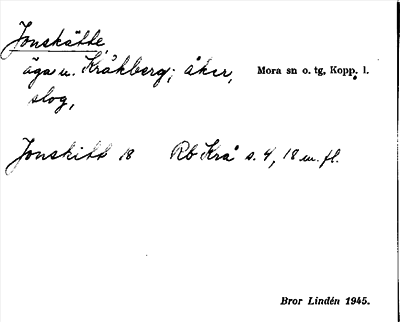 Jonskätte,
äga u. Kråkberg; åker, Mora sn o. tg, Kopp. l.
slog,
Jonskitt 18 Rb Krå s. 4, 18 m. fl.
Bror Lindén 1945.